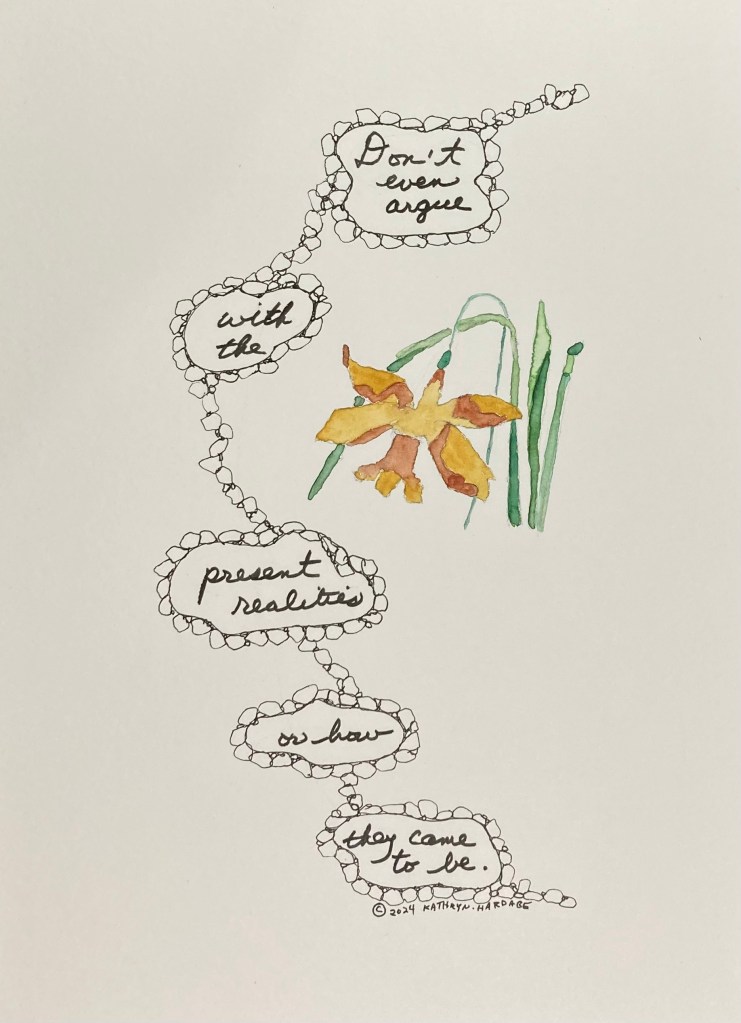 Don't
even
argue
with
the
present
realities
or how
they came
to be.
© 2024 KATHRYN·HARDAGE